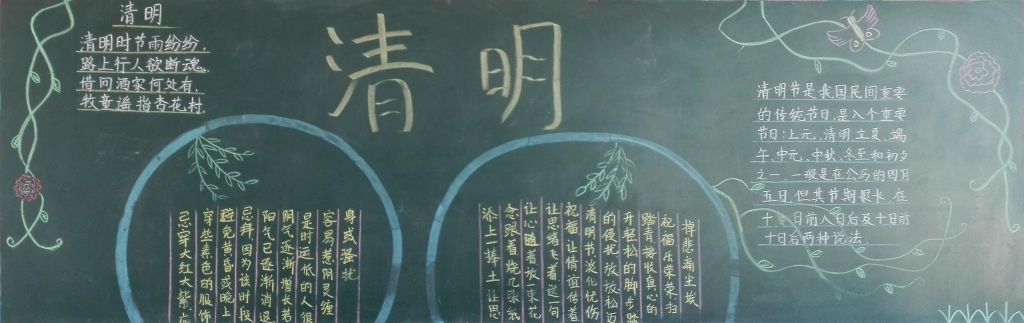 清明
清明时节雨纷纷，
路上行人欲断魂。
借问酒家何处有，
牧童遥指杏花村
清明
身或骚扰
容易惹阴灵缠
是时运低的人很
阴气逐渐增长若
阳气已逐渐消退
忌拜因为该时段
避免黄昏或晚上
穿些素色的服饰
忌穿大红大紫应
掉悲痛尘埃
祝福乐荣荣扫
踏青接收真心的
开轻松的脚步踏
的侵扰放放松迈
清明节淡化忧伤
祝福让情谊传着
让思绪飞着送一句
让心随着放一束花
念跟着烧几张纸
添上一捧土让思
清明节是我国民间重要
的传统节日，是八个重要
节日：上元、清明、立夏、端
午、中元、中秋、冬至和初夕
之一，一般是在公历的四月
五日，但其节期很长，在
十日前八日后及十日前
十日后两种说法。